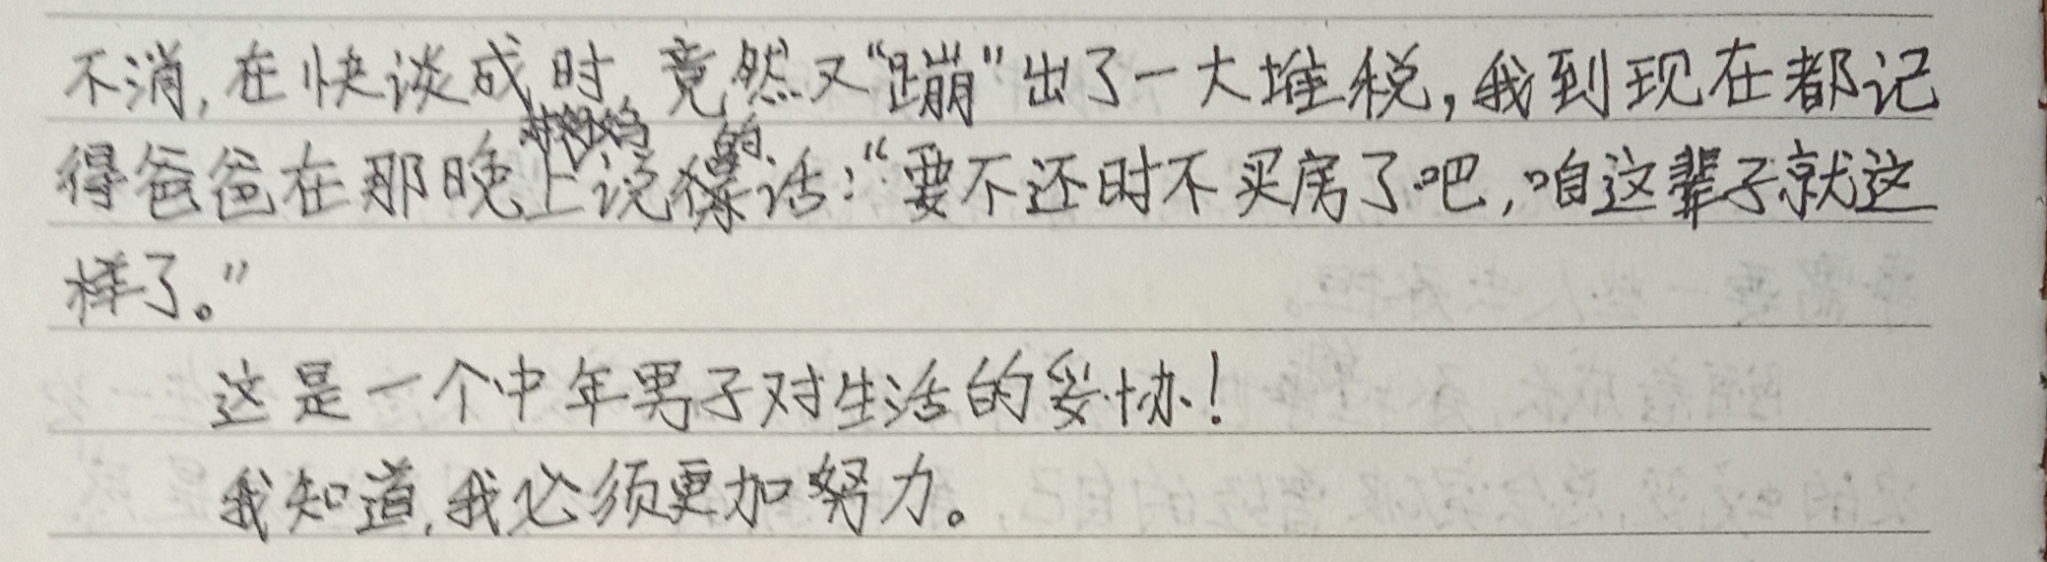 不消,在快谈成时,竟然又“蹦”出了一大堆税,我到现在都记
得爸爸在那晚上说的话:“要不还时不买房了吧,咱这辈子就这
样了。”
这是一个中年男子对生活的妥协!
我知道,我必须更加努力。